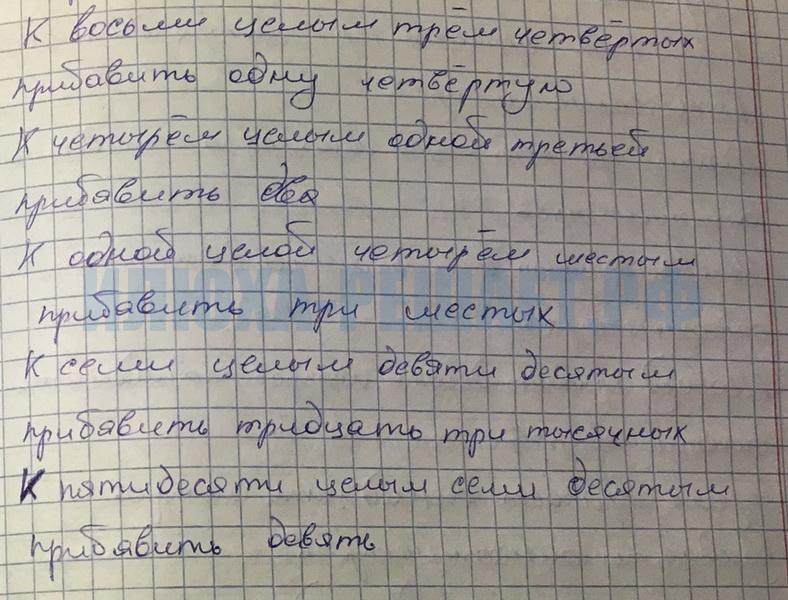 К восьми целым трём четвёртых
прибавить одну четвёртую
К четырём целым одной третьей
прибавить два
К одной целой четырём шестым
ИЛЮХА-РЕШАЕТ.РФ
прибавить три шестых
К семи целым девяти десятым
прибавить тридцать три тысячных
К пятидесяти целым семи десятым
прибавить девять